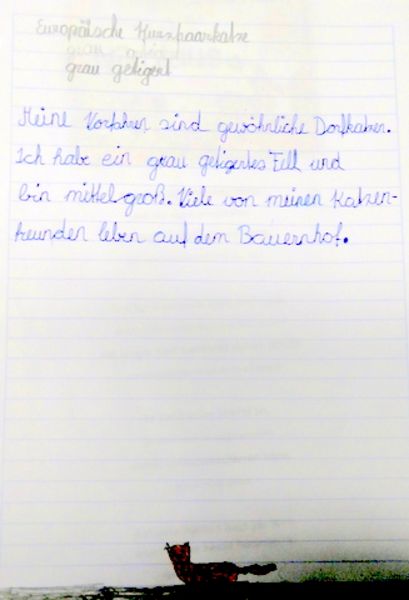 Europäische Kurzhaarkatze
grau getigert
Meine Vorfahren sind gewöhnliche Dorfkatzen.
Ich habe ein grau getigertes Fell und
bin mittelgroß. Viele von meinen Katzen-
freunden leben auf dem Bauernhof.